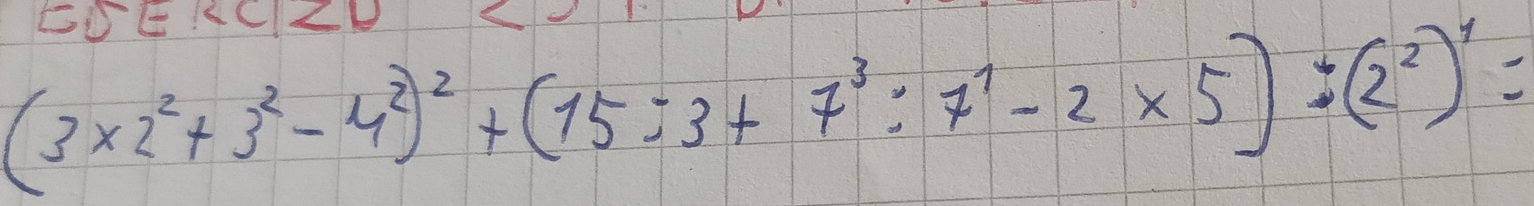 ESERCIZIO
(3×2²+3²-4²)²+(15:3+7³:7¹-2×5):(2²)¹=